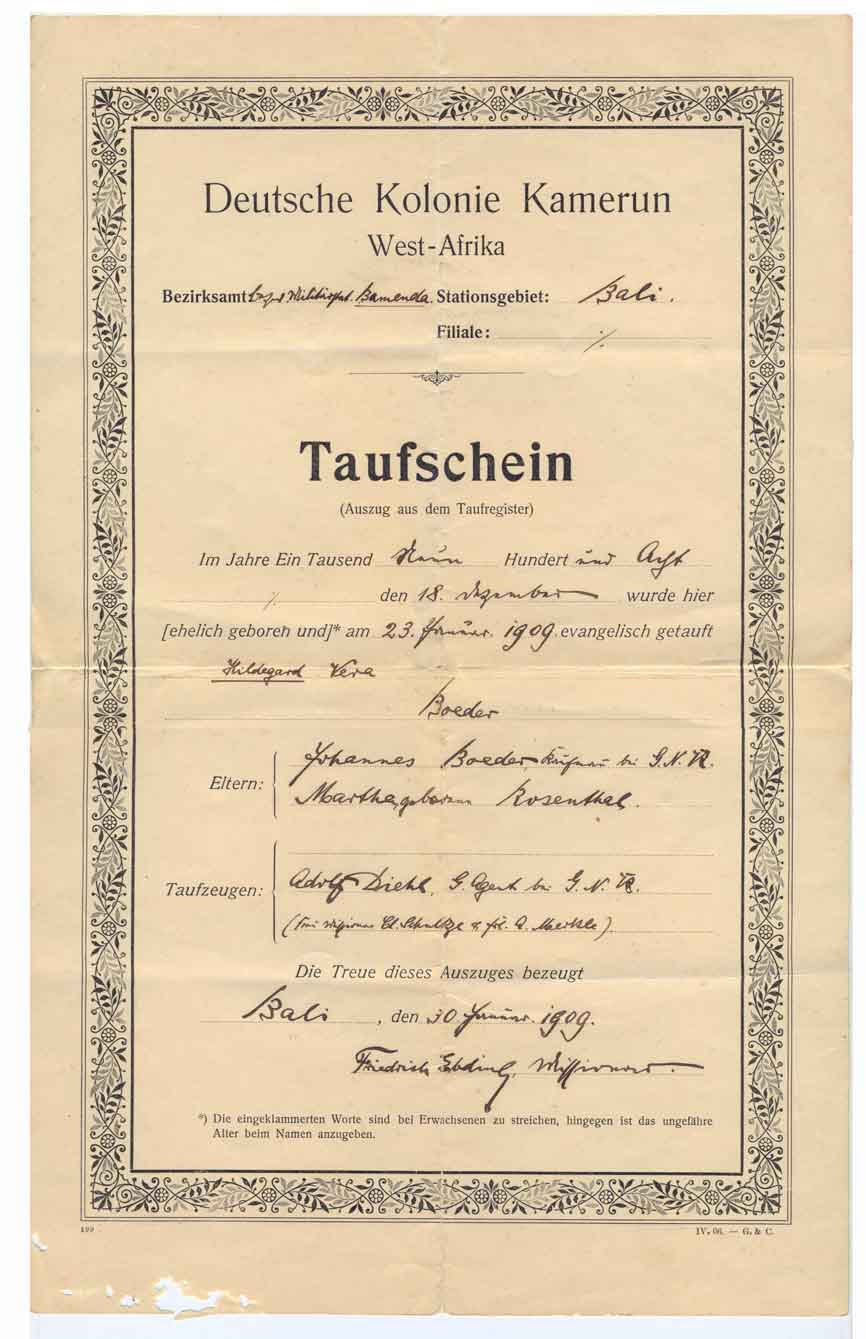 Deutsche Kolonie Kamerun
West-Afrika
Bezirksamt: Bamenda. Stationsgebiet: Bali.
Filiale: ./.
Taufschein
(Auszug aus dem Taufregister)
Im Jahre Ein Tausend Neun Hundert und Acht
./. den 18. Dezember wurde hier
[ehelich geboren und]* am 23. Januar. 1909. evangelisch getauft
Hildegard Vera
Boeder
Eltern: Johannes Boeder, Kaufmann bei G.N.K.
Martha, geborene Rosenthal.
Taufzeugen: Adolf Diehl, G. Agent bei G.N.K.
(Frau Mission. Schultze & Frl. A. Merkle).
Die Treue dieses Auszuges bezeugt
Bali, den 30. Januar. 1909.
Friedrich Ebding, Missionar.
*) Die eingeklammerten Worte sind bei Erwachsenen zu streichen, hingegen ist das ungefähre
Alter beim Namen anzugeben.
199
IV. 06. — G. & C.